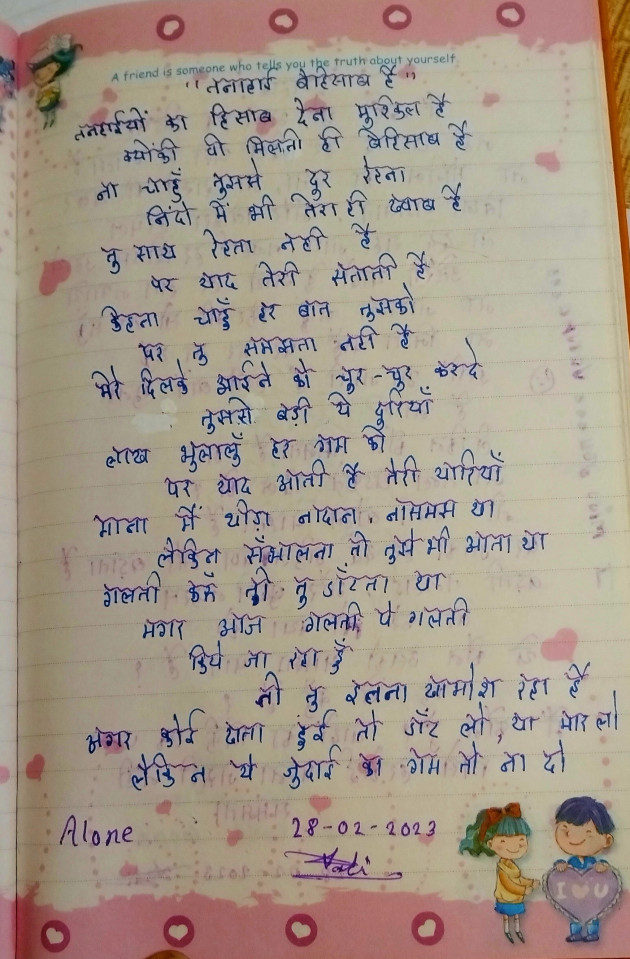 A friend is someone who tells you the truth about yourself
"तनहाई बेहिसाब है"
तनहाईयों का हिसाब देना मुश्किल है
क्योंकी वो मिलती ही बेहिसाब है
ना चाहुँ तुमसे दुर रेहना
निंदो में भी तेरा ही ख्वाब है
तु साथ रेहता नही है
पर याद तेरी सताती है
केहना चाहुँ हर बात तुमको
पर तु समझता नही है
मेरे दिलके आईने को चुर-चुर करदे
तुमसे बड़ी ये दुरियाँ
लाख भुलालुँ हर गम को
पर याद आती है तेरी यारियाँ
माना मैं थोड़ा नादान, नासमझ था
लेकिन सँभालना तो तुझे भी आता था
गलती करुँ तो तु डाँटता था
मगर आज गलती पे गलती
किये जा रहा हुँ
तो तु इतना खामोश रहा है
अगर कोई खता हुई तो डाँट लो, या मार लो
लेकिन ये जुदाई का गम तो ना दो
Alone 28-02-2023
I ♥ U